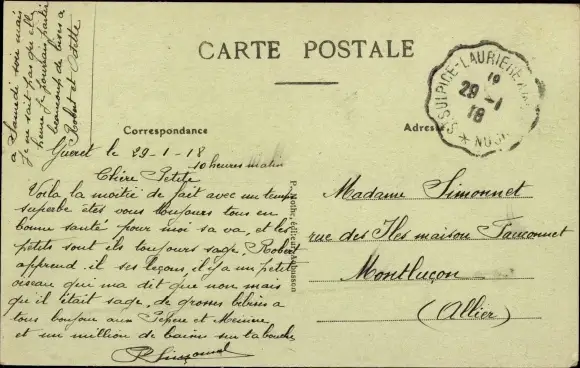 à Samedi soir mais
je ne sait pas quelle
heure je pourrai partir
beaucoup de bises a
Robert et Odette
CARTE POSTALE
Correspondance
Adresse
ST SULPICE-LAURIERE
19
29 -1
18
Gueret le 29-1-18
10 heures matin
Chère Petite
Voila la moitié de fait avec un temps
superbe étes vous toujours tous en
bonne santé pour moi sa va, et les
petits sont ils toujours sage, Robert
apprend il ses leçons, il y a un petit
oiseau qui ma dit que non mais
qu'il était sage, de grosses bibises a
tous bonjour aux Pépère et Mémère
et un million de baisers sur ta bouche
R Simonnet
P. Nothe, édit., Aubusson
Madame Simonnet
rue des Iles maison Fauconnet
Montluçon
(Allier)